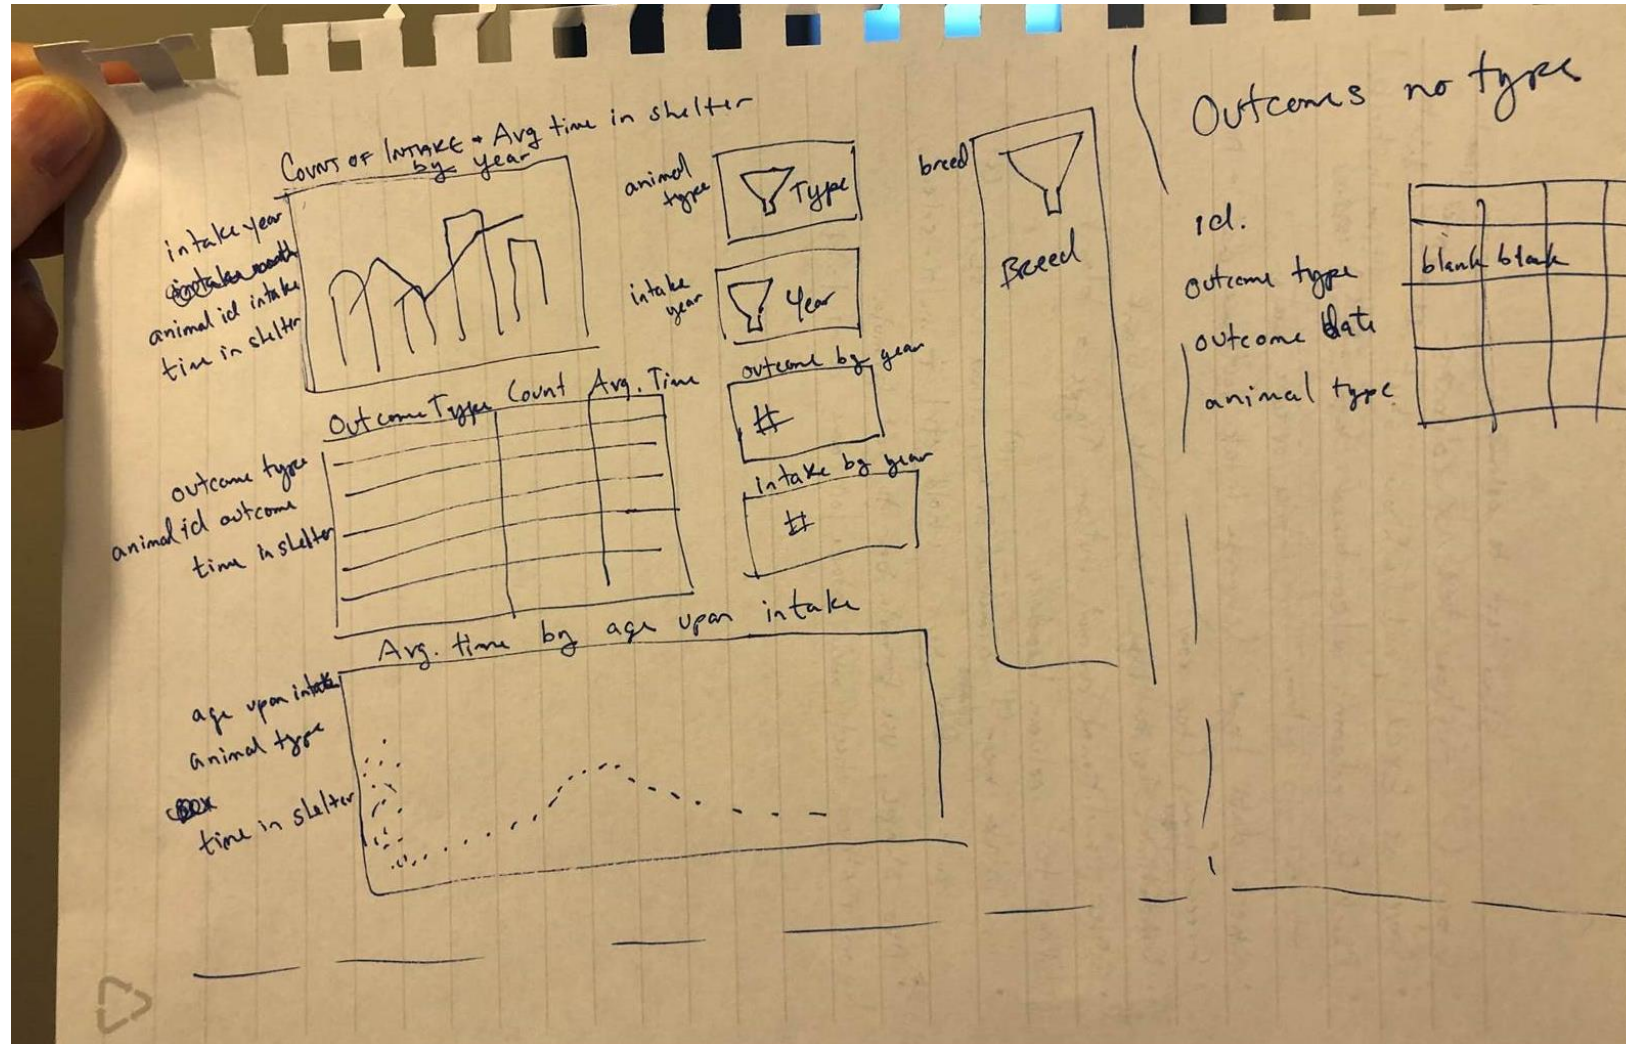 Count of Intake + Avg time in shelter
by year
intake year
intake month
animal id intake
time in shelter
animal
type
Type
intake
year
Year
outcome by year
#
intake by year
#
breed
Breed
Outcome Type Count Avg. Time
outcome type
animal id outcome
time in shelter
Avg. time by age upon intake
age upon intake
animal type
sex
time in shelter
Outcomes no type
id.
outcome type
outcome date
animal type
blank blank